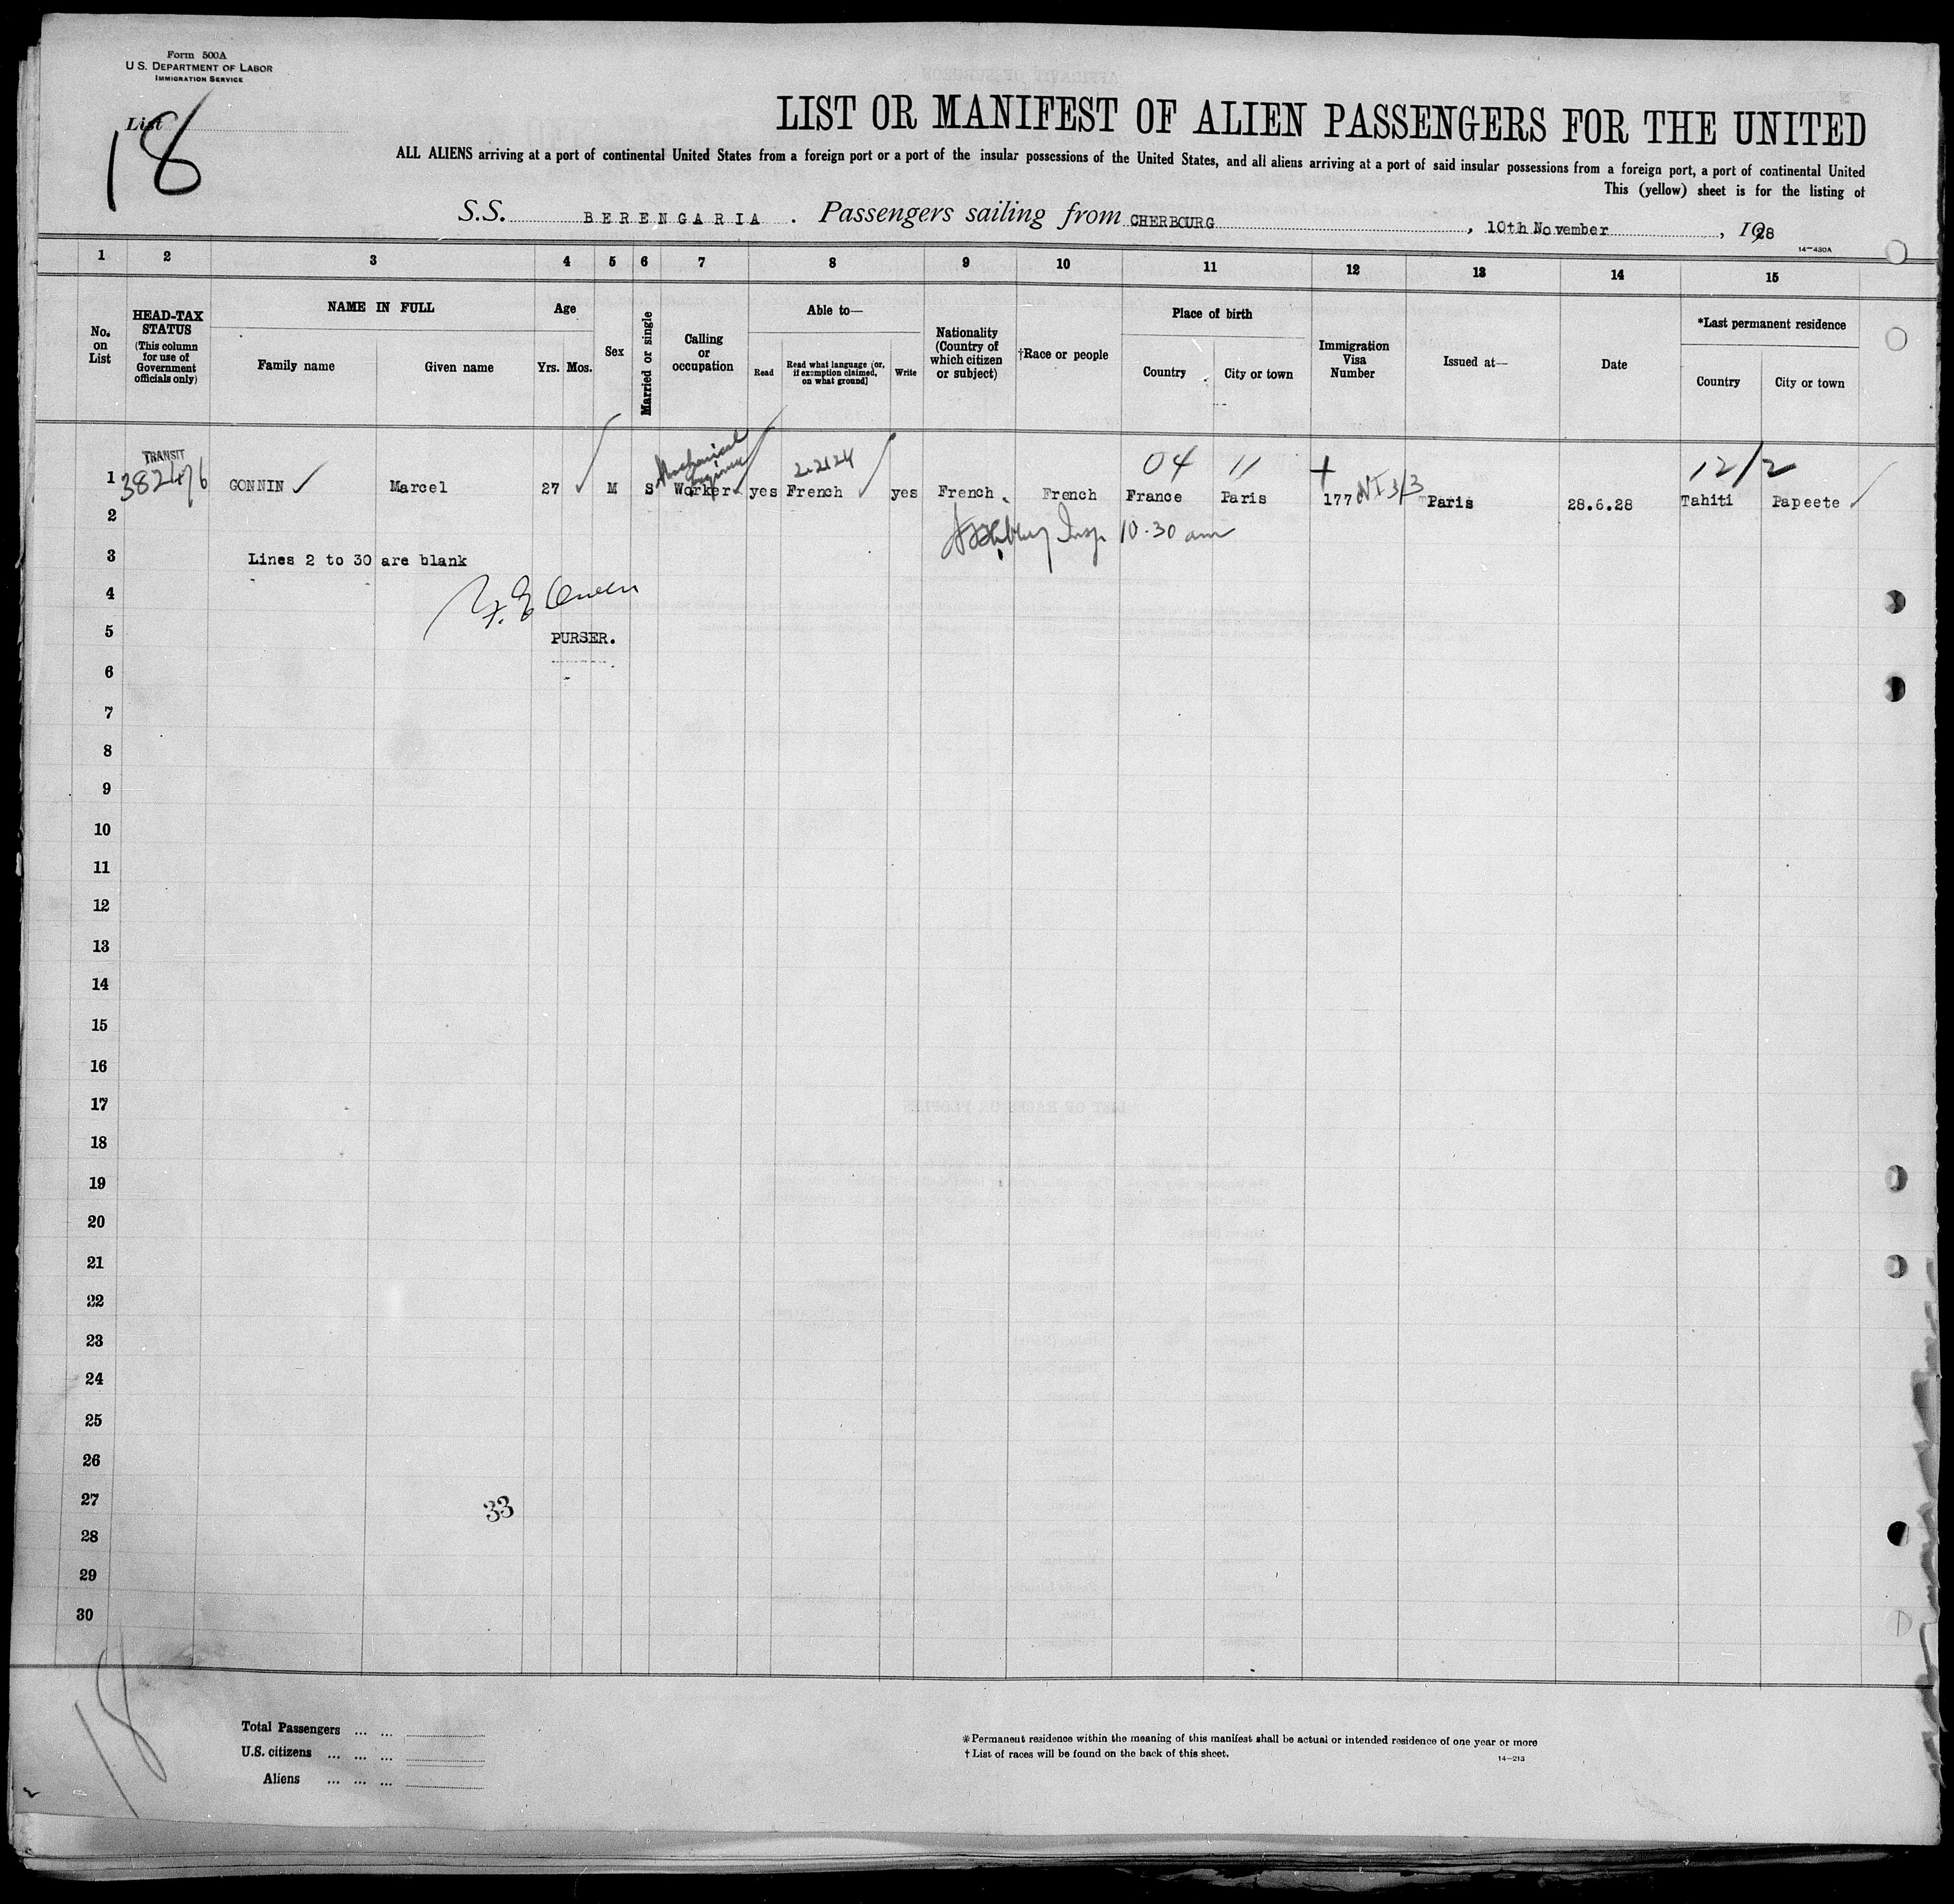 Form 500A
U.S. DEPARTMENT OF LABOR
IMMIGRATION SERVICE
List
18
LIST OR MANIFEST OF ALIEN PASSENGERS FOR THE UNITED
ALL ALIENS arriving at a port of continental United States from a foreign port or a port of the insular possessions of the United States, and all aliens arriving at a port of said insular possessions from a foreign port, a port of continental United
This (yellow) sheet is for the listing of
S.S. BERENGARIA. Passengers sailing from CHERBOURG, 10th November, 1928
14-430A
1 2 3 4 5 6 7 8 9 10 11 12 13 14 15
No. on List
HEAD-TAX STATUS
(This column for use of Government officials only)
NAME IN FULL
Family name Given name
Age
Yrs. Mos.
Sex
Married or single
Calling or occupation
Able to—
Read Read what language [or, if exemption claimed, on what ground] Write
Nationality (Country of which citizen or subject)
†Race or people
Place of birth
Country City or town
Immigration Visa Number
Issued at—
Date
*Last permanent residence
Country City or town
TRANSIT Mechanical Engineer 04 11 12/2
1 382476 GONNIN Marcel 27 M S Worker yes French yes French French France Paris 177 Paris 28.6.28 Tahiti Papeete
2 Insp. 10.30 am
3 Lines 2 to 30 are blank
4
5 PURSER.
6
7
8
9
10
11
12
13
14
15
16
17
18
19
20
21
22
23
24
25
26
27 33
28
29
30
18
Total Passengers ... ...
U.S. citizens ... ... ...
Aliens ... ... ...
*Permanent residence within the meaning of this manifest shall be actual or intended residence of one year or more
†List of races will be found on the back of this sheet.
14-213